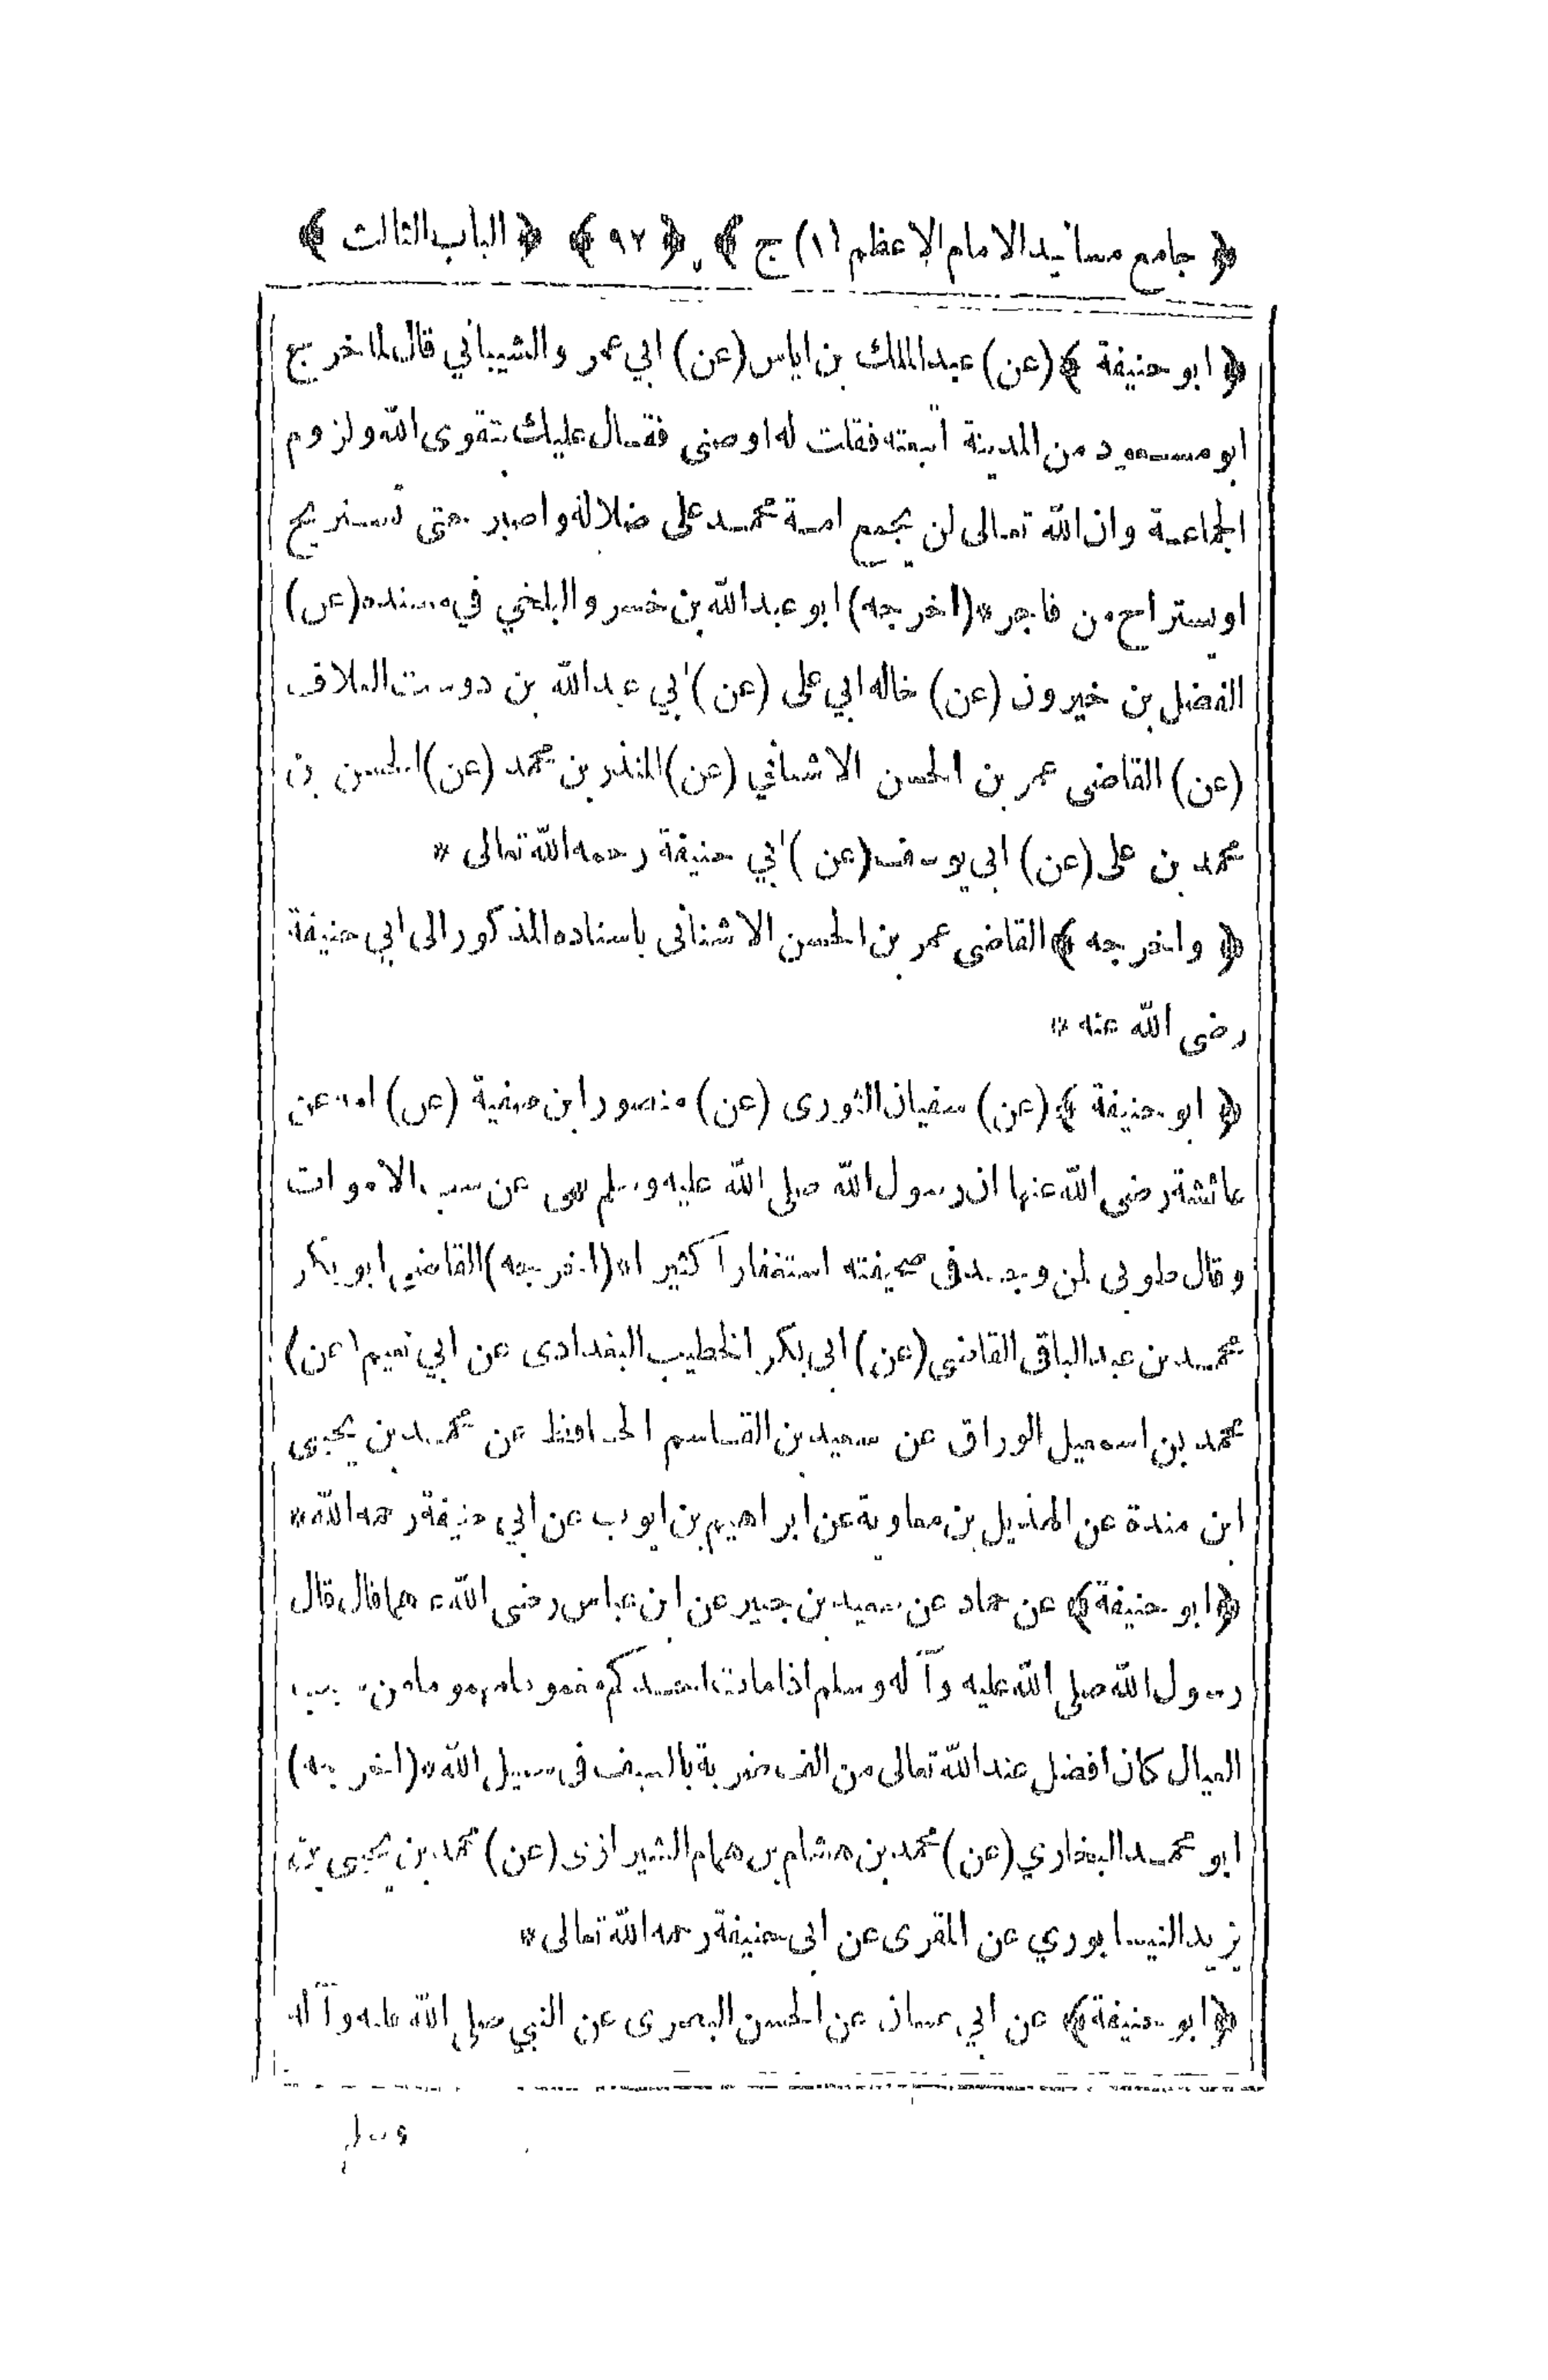 ﴿ جامع مسانيد الامام الاعظم (١) ج ﴾ ﴿ ٩٧ ﴾ ﴿ الباب الثالث ﴾
﴿ ابو حنيفة ﴾ (عن) عبد الملك بن اياس (عن) ابي عمر و الشيباني قال لما خرج
ابو مسعود من المدينة اتبعته فقلت له اوصنى فقال عليك بتقوى الله ولزوم
الجماعة وان الله تعالى لن يجمع امة محمد على ضلالة واصبر حتى تستريح
او يستراح من فاجر * (اخرجه) ابو عبد الله بن خسرو البلخي في مسنده (عن)
الفضل بن خيرون (عن) خاله ابي على (عن) ابي عبد الله بن دوست العلاف
(عن) القاضى عمر بن الحسن الاشناني (عن) المنذر بن محمد (عن) الحسن بن
محمد بن على (عن) ابى يوسف (عن) ابي حنيفة رحمه الله تعالى *
﴿ واخرجه ﴾ القاضى عمر بن الحسن الاشنانى باسناده المذكور الى ابي حنيفة
رضى الله عنه *
﴿ ابو حنيفة ﴾ (عن) سفيان الثورى (عن) منصور ابن صفية (عن) امه عن
عائشة رضى الله عنها ان رسول الله صلى الله عليه وسلم نهى عن سب الاموات
وقال طوبى لمن وجد فى صحيفته استغفارا كثير ا * (اخرجه) القاضي ابو بكر
محمد بن عبد الباقى القاضى (عن) ابى بكر الخطيب البغدادى عن ابي نعيم (عن)
محمد بن اسمعيل الوراق عن سعيد بن القاسم الحافظ عن محمد بن يحيى
ابن مندة عن الهذيل بن معاوية عن ابراهيم بن ايوب عن ابي حنيفة رحمه الله *
﴿ ابو حنيفة ﴾ عن حماد عن سعيد بن جبير عن ابن عباس رضى الله عنهما قال قال
رسول الله صلى الله عليه وآله وسلم اذا مات احدكم مغموما مهموما من سبب
العيال كان افضل عند الله تعالى من الف ضربة بالسيف فى سبيل الله * (اخرجه)
ابو محمد البخاري (عن) محمد بن هشام بن همام الشيرازى (عن) محمد بن يحيى بن
يزيد النيسابوري عن المقرى عن ابى حنيفة رحمه الله تعالى *
﴿ ابو حنيفة ﴾ عن ابي غسان عن الحسن البصرى عن النبي صلى الله عليه وآله
وسلم